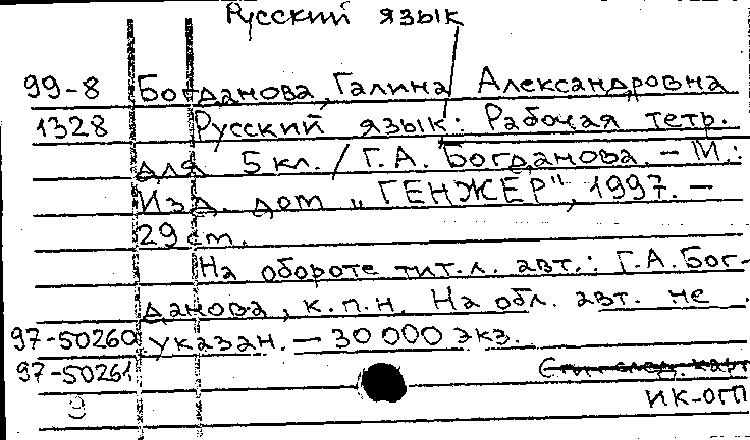 Русский язык
99-8 Богданова, Галина Александровна
1328 Русский язык: Рабочая тетр.
для 5 кл. / Г.А. Богданова. – М.:
Изд. дом „ГЕНЖЕР", 1997. –
29 ст.
На обороте тит.л. авт.: Г.А. Бог-
данова, к.п.н. На обл. авт. не
97-50260 указан. – 30 000 экз.
97-50261
9 ИК-ОГП